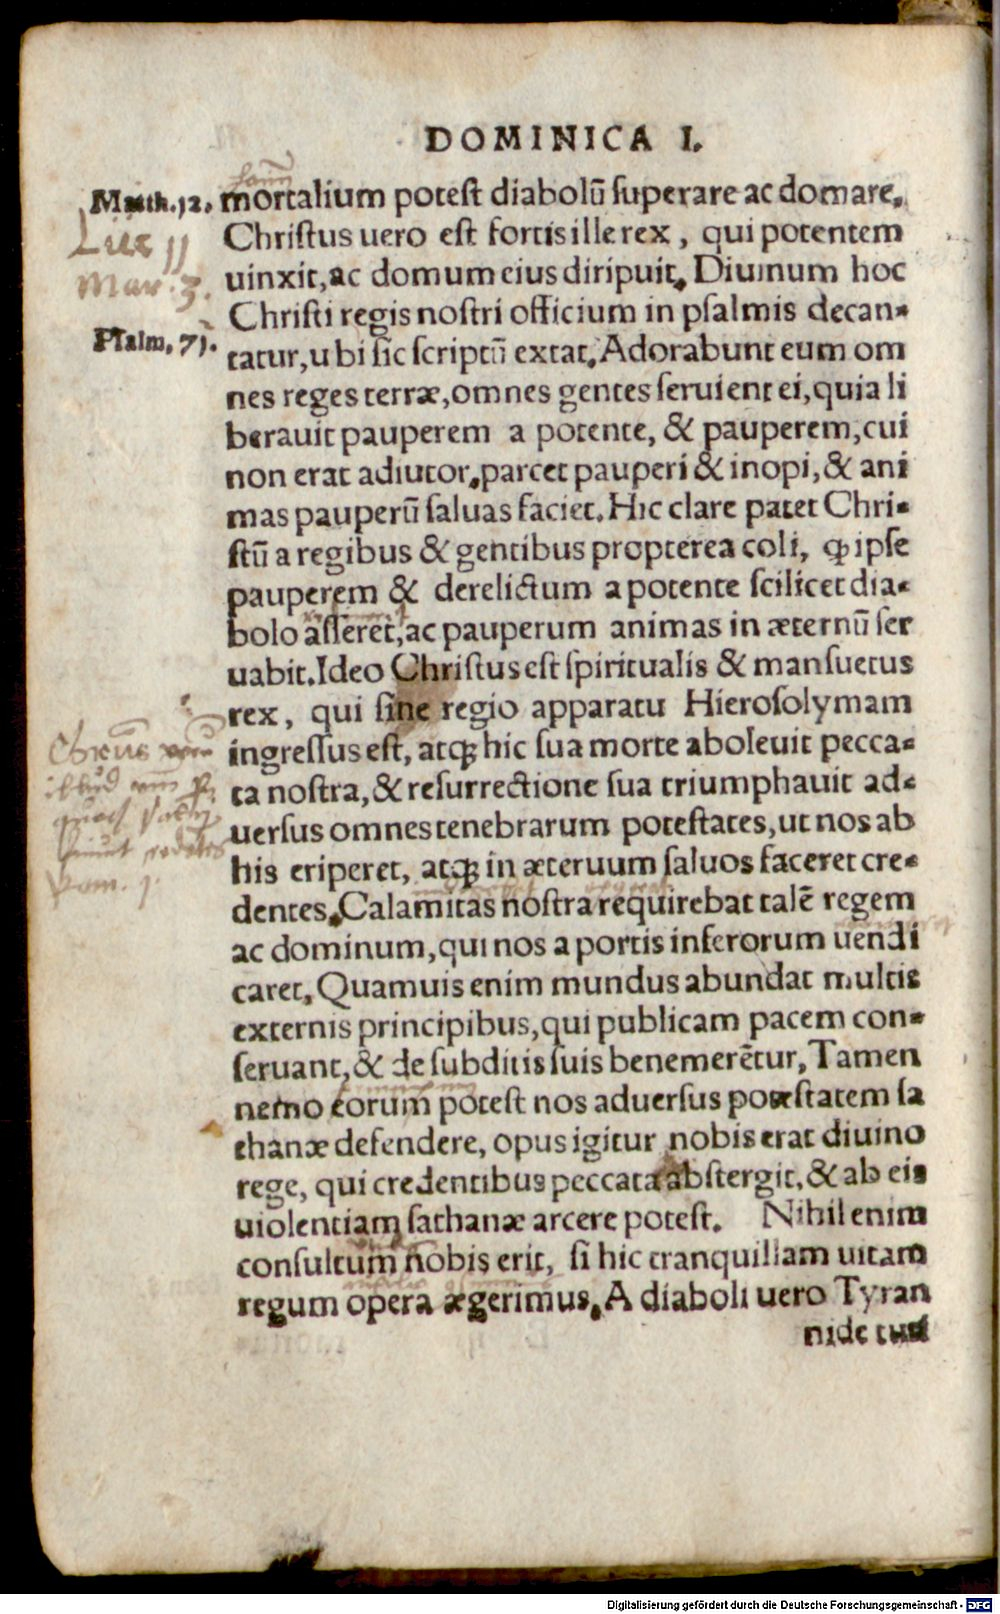 DOMINICA I.
Matth.12. mortalium potest diabolū superare ac domare.
Luc 11
Christus uero est fortis ille rex, qui potentem
Mar. 3.
uinxit, ac domum eius diripuit. Diuinum hoc
Christi regis nostri officium in psalmis decan-
Psalm. 71.
tatur, ubi sic scriptū extat. Adorabunt eum om
nes reges terræ, omnes gentes seruient ei, quia li
berauit pauperem a potente, & pauperem, cui
non erat adiutor, parcet pauperi & inopi, & ani
mas pauperū saluas faciet. Hic clare patet Chri-
stū a regibus & gentibus propterea coli, ꝙ ipse
pauperem & derelictum a potente scilicet dia-
bolo asseret, ac pauperum animas in æternū ser
uabit. Ideo Christus est spiritualis & mansuetus
rex, qui sine regio apparatu Hierosolymam
ingressus est, atqꝫ hic sua morte aboleuit pecca-
ta nostra, & resurrectione sua triumphauit ad-
uersus omnes tenebrarum potestates, ut nos ab
his eriperet, atqꝫ in æteruum saluos faceret cre-
dentes. Calamitas nostra requirebat talē regem
ac dominum, qui nos a portis inferorum uendi
caret. Quamuis enim mundus abundat multis
externis principibus, qui publicam pacem con-
seruant, & de subditis suis benemerētur, Tamen
nemo eorum potest nos aduersus potestatem sa
thanæ defendere, opus igitur nobis erat diuino
rege, qui credentibus peccata abstergit, & ab eis
uiolentiam sathanæ arcere potest. Nihil enim
consultum nobis erit, si hic tranquillam uitam
regum opera ægerimus. A diaboli uero Tyran
nide
Digitalisierung gefördert durch die Deutsche Forschungsgemeinschaft - DFG